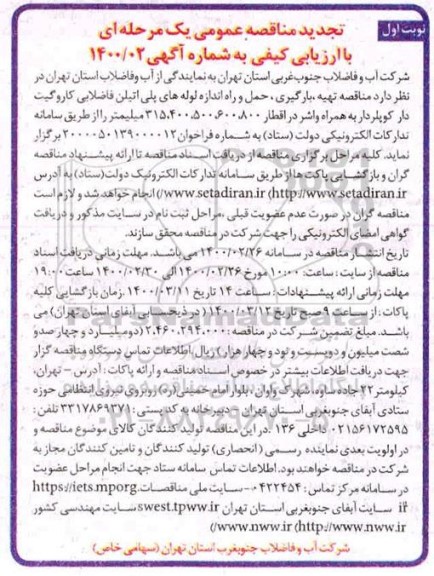 نوبت اول
تجدید مناقصه عمومی یک مرحله ای
با ارزیابی کیفی به شماره آگهی ۱۴۰۰/۰۲
شرکت آب و فاضلاب جنوب غربی استان تهران به نمایندگی از آب وفاضلاب استان تهران در
نظر دارد مناقصه تهیه ،بارگیری ، حمل و راه اندازه لوله های پلی اتیلن فاضلابی کاروگیت
دار کوپلردار به همراه واشر در اقطار ۳۱۵،۴۰۰،۵۰۰،۶۰۰،۸۰۰ میلیمتر را از طریق سامانه
تدارکات الکترونیکی دولت (ستاد) به شماره فراخوان ۲۰۰۰۰۵۰۱۳۹۰۰۰۰۱۲ برگزار
نماید. کلیه مراحل برگزاری مناقصه از دریافت اسناد مناقصه تا ارائه پیشنهاد مناقصه
گران و بازگشایی پاکت ها از طریق سامانه تدارکات الکترونیک دولت(ستاد) به آدرس
www.setadiran.ir (http://www.setadiran.ir/) انجام خواهد شد و لازم است
مناقصه گران در صورت عدم عضویت قبلی ،مراحل ثبت نام در سایت مذکور و دریافت
گواهی امضای الکترونیکی را جهت شرکت در مناقصه محقق سازند.
تاریخ انتشار مناقصه در سامانه ۱۴۰۰/۰۲/۲۶ می باشد. مهلت زمانی دریافت اسناد
مناقصه از سایت : ساعت: ۱۰:۰۰ مورخ ۱۴۰۰/۰۲/۲۶ الی ۱۴۰۰/۰۲/۳۰ ساعت ۱۹:۰۰
مهلت زمانی ارائه پیشنهادات: ساعت ۱۴ تاریخ ۱۴۰۰/۰۳/۱۱ .زمان بازگشایی کلیه
پاکات : از ساعت ۹ صبح تاریخ ۱۴۰۰/۰۳/۱۲ ( در ذیحسابی آبفای استان تهران) می
باشد. مبلغ تضمین شرکت در مناقصه : ۲،۴۶۰،۲۹۴،۰۰۰ (دومیلیارد و چهار صدو
شصت میلیون و دویست و نود و چهار هزار) ریال اطلاعات تماس دستگاه مناقصه گزار
جهت دریافت اطلاعات بیشتر در خصوص اسناد مناقصه و ارائه پاکات : آدرس - تهران،
کیلومتر ۲۲ جاده ساوه، شهرک واوان ، بلوار امام خمینی(ره) روبروی نیروی انتظامی حوزه
ستادی آبفای جنوبغربی استان تهران - دبیرخانه به کدپستی : ۳۳۱۷۸۶۹۳۷۱ تلفن :
۰۲۱۵۶۱۷۲۵۹۵ داخلی ۱۳۶ .در این مناقصه تولید کنندگان کالای موضوع مناقصه و
در اولویت بعدی نماینده رسمی (انحصاری) تولید کنندگان و تامین کنندگان مجاز به
شرکت در مناقصه خواهند بود. اطلاعات تماس سامانه ستاد جهت انجام مراحل عضویت
در سامانه مرکز تماس : سایت ملی مناقصات https://iets.mporg.
ir سایت آبفای جنوبغربی استان تهران swest.tpww.ir سایت مهندسی کشور
www.nww.ir (http://www.nww.ir/)
شرکت آب و فاضلاب جنوبغرب استان تهران (سهامی خاص)